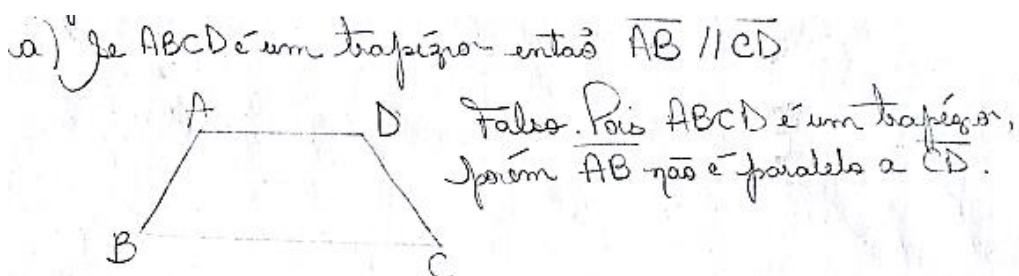 a) Se ABCD é um trapézio então AB // CD
A D
Falso. Pois ABCD é um trapézio,
porém AB não é paralelo a CD.
B C